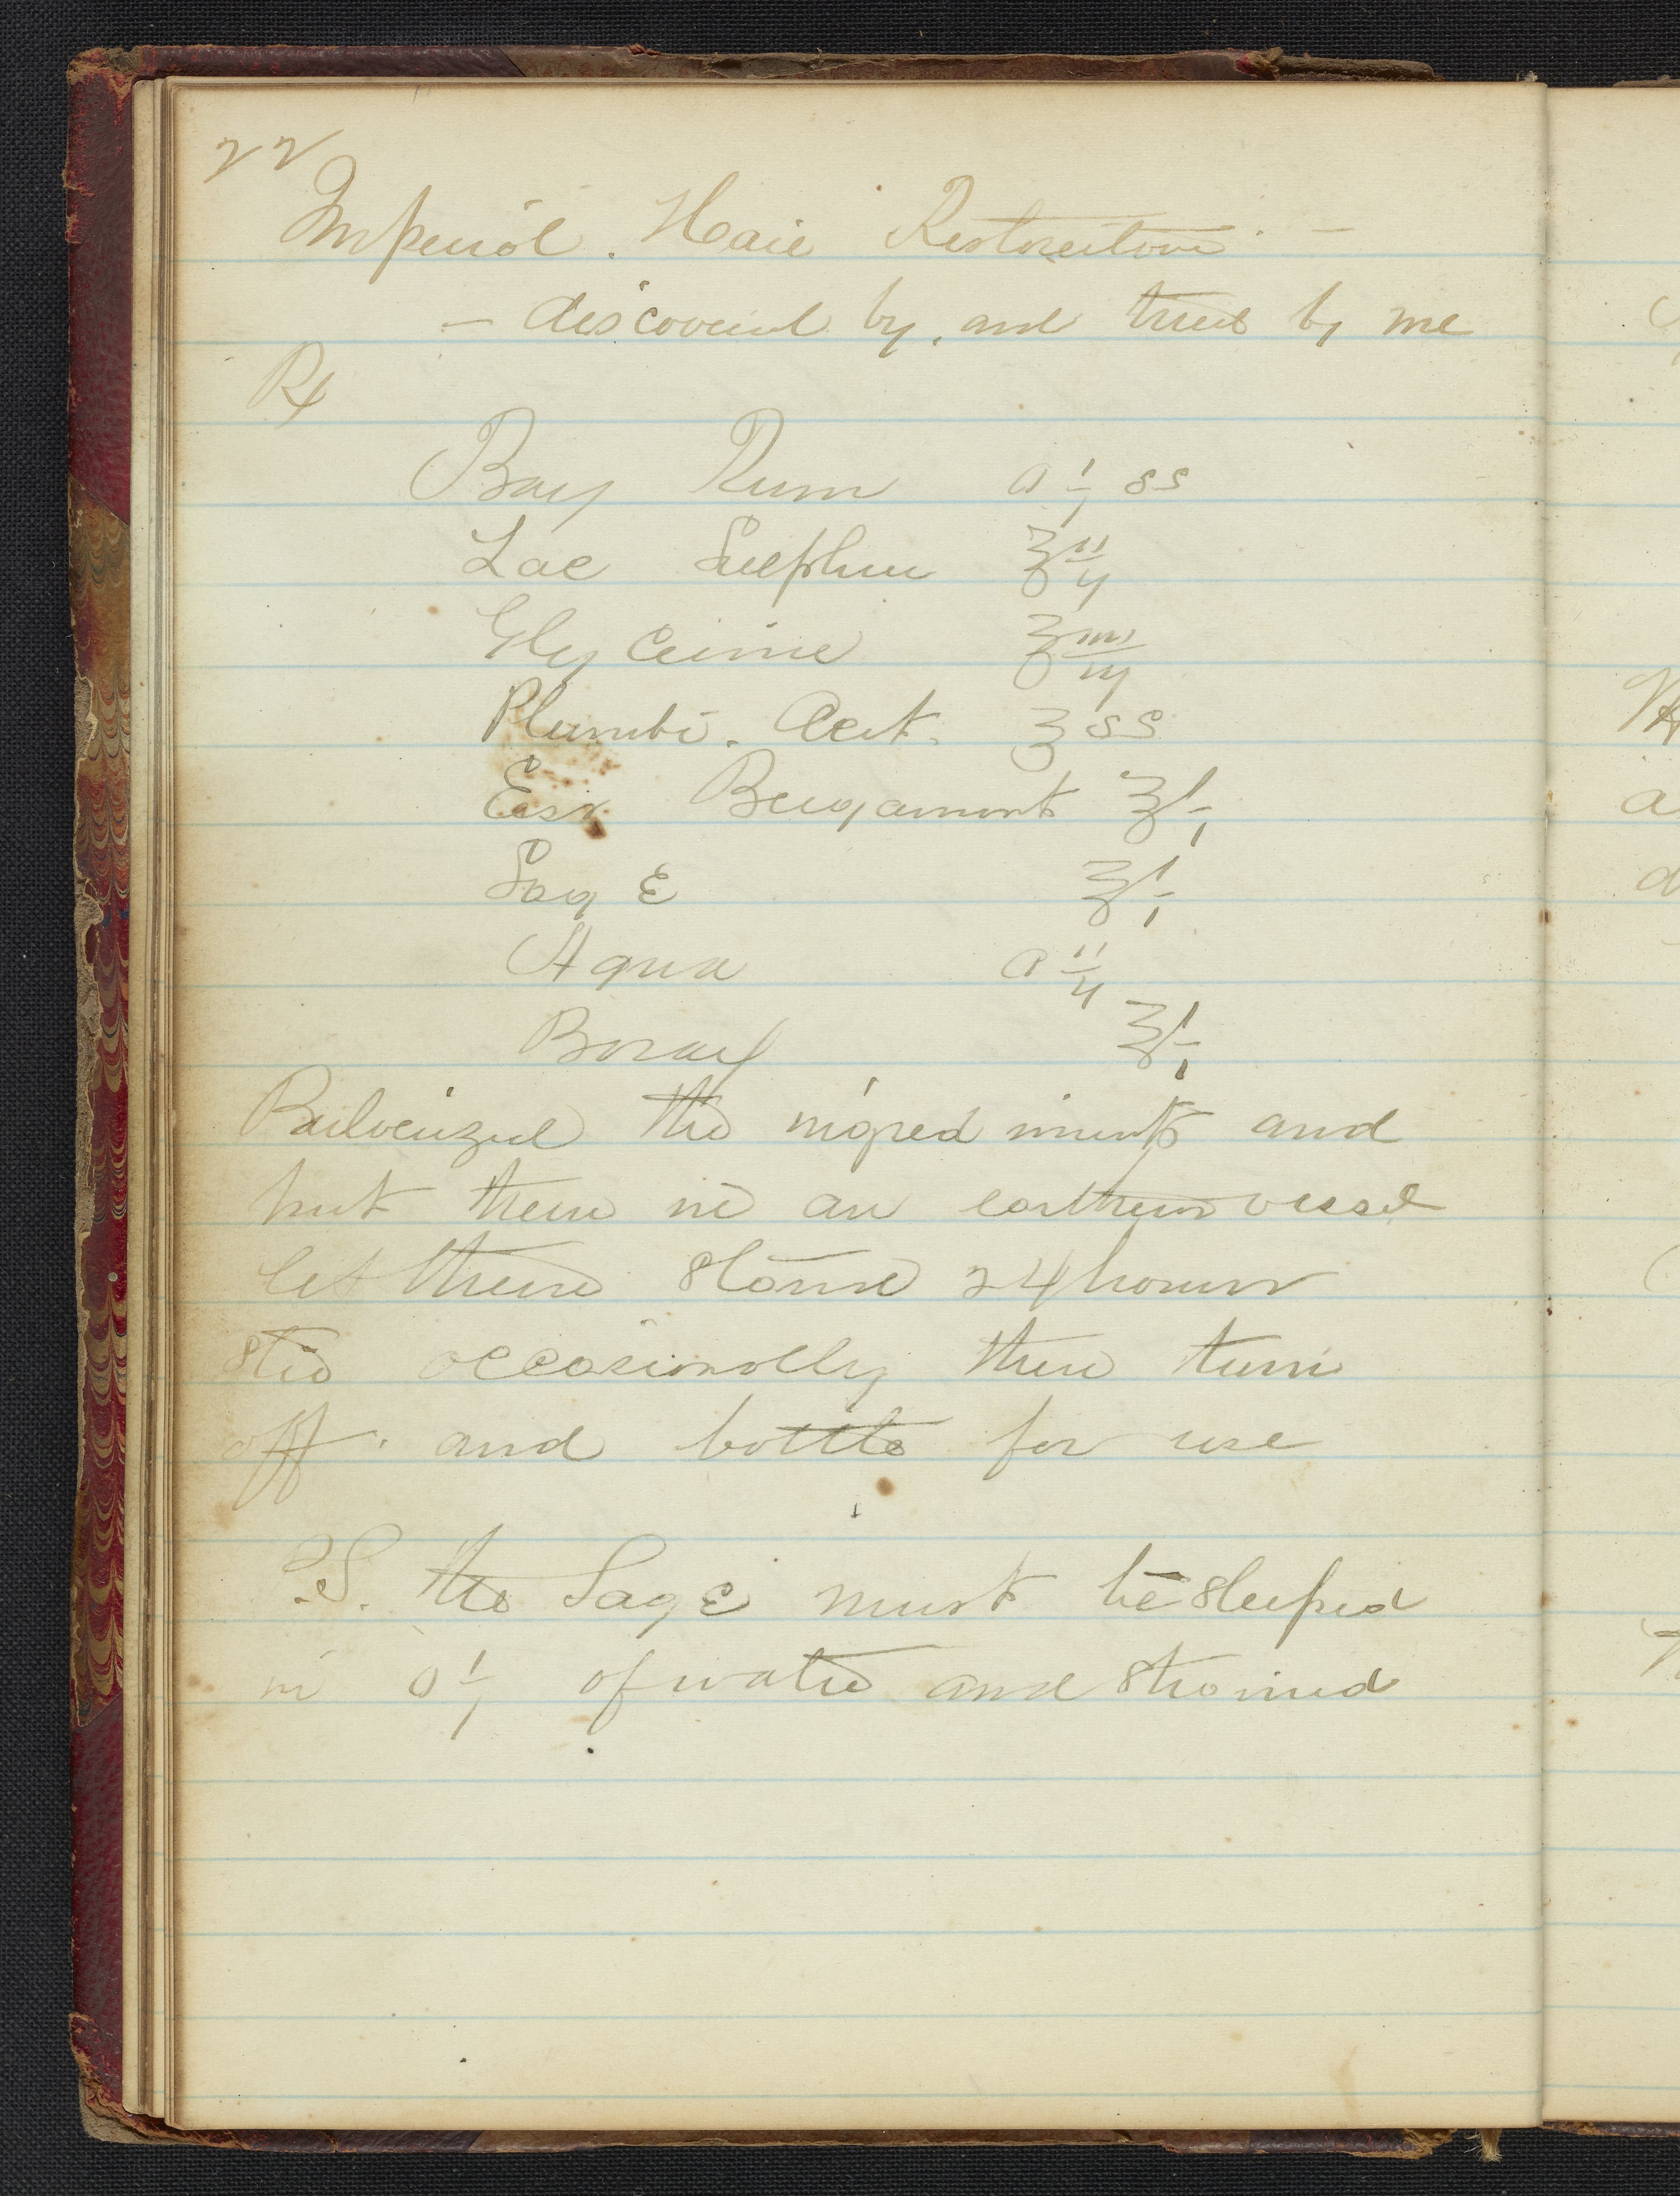 22
Imperial. Hair Restorative. —
— discovered by, and tried by me
℞
Bay Rum O i ss
Lac Sulphur ℥ ii
Glycerine ℥ iii
Plumbi. Acet. ℥ ss
Ess Bergamont ℥ i
Sage ℥ i
Aqua O ii
Borax ℥ i
Pulverized the ingrediments and
put them in an earthern vessel
let them stand 24 hours
stir occasionally then turn
off. and bottle for use
P.S. the Sage must be steeped
in O i of water and strained